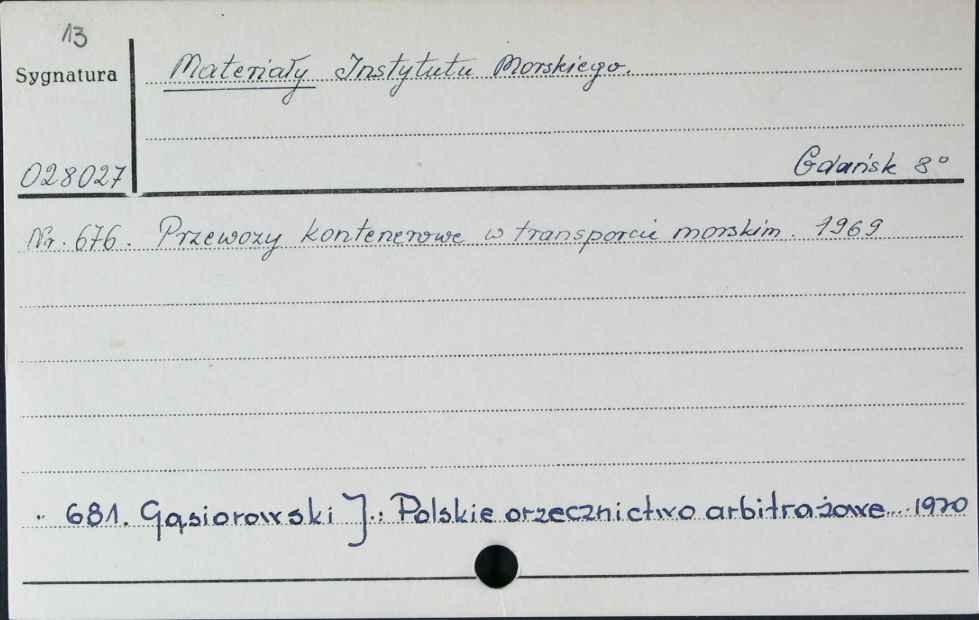 13
Sygnatura
Materiały Instytutu Morskiego.
028027
Gdańsk 8°
Nr. 676. Przewozy kontenerowe w transporcie morskim. 1969
" 681. Gąsiorowski J.: Polskie orzecznictwo arbitrażowe... 1970